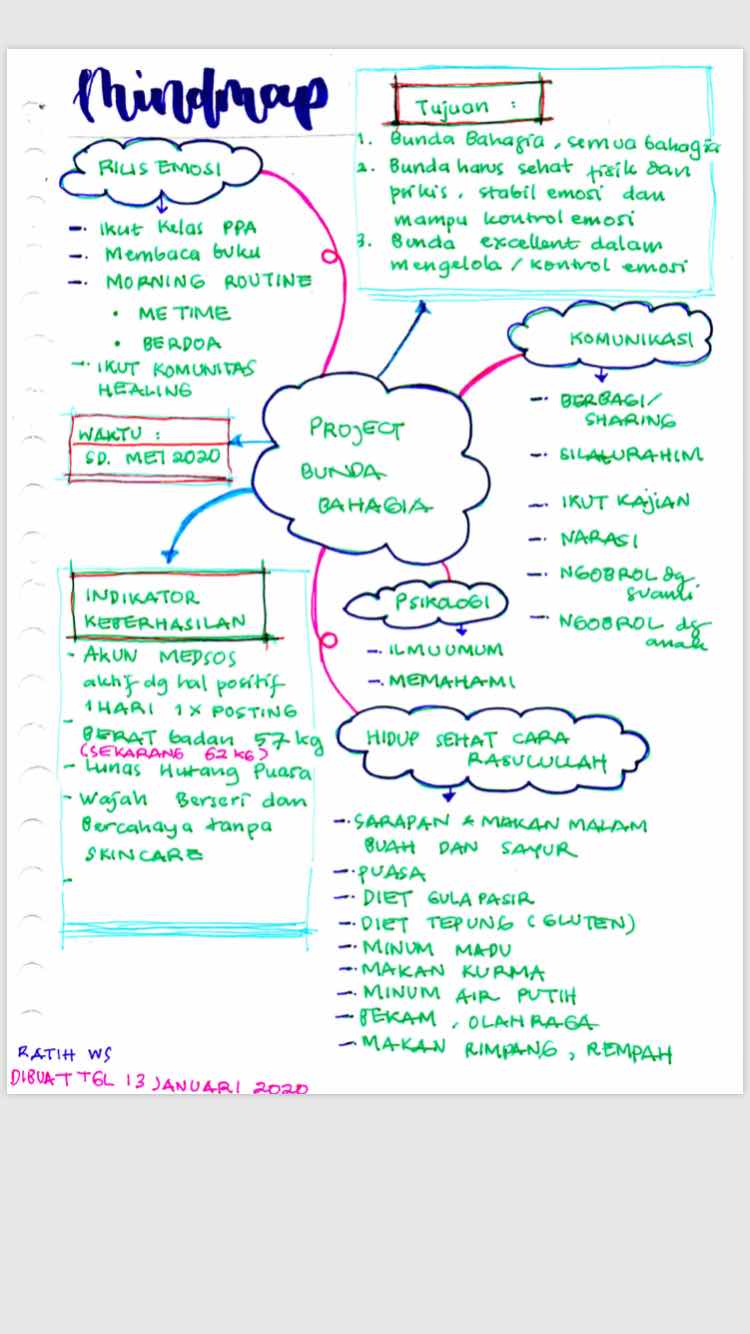 Mindmap
Tujuan :
1. Bunda Bahagia, semua bahagia
2. Bunda harus sehat fisik dan
psikis, stabil emosi dan
mampu kontrol emosi
3. Bunda excellent dalam
mengelola / kontrol emosi
RILIS EMOSI
-. Ikut Kelas PPA
-. Membaca buku
-. MORNING ROUTINE
• ME TIME
• BERDOA
-. IKUT KOMUNITAS
HEALING
KOMUNIKASI
-. BERBAGI/
SHARING
-. SILATURAHIM
-. IKUT KAJIAN
-. NARASI
-. NGOBROL dg
suami
-. NGOBROL dg
anak
WAKTU :
SD. MEI 2020
PROJECT
BUNDA
BAHAGIA
INDIKATOR
KEBERHASILAN
- AKUN MEDSOS
aktif dg hal positif
1 HARI 1 X POSTING
- BERAT badan 57 kg
(SEKARANG 62 KG)
- Lunas Hutang Puasa
- Wajah Berseri dan
Bercahaya tanpa
SKINCARE
-
PSIKOLOGI
-. ILMU UMUM
-. MEMAHAMI
HIDUP SEHAT CARA
RASULULLAH
-. SARAPAN & MAKAN MALAM
BUAH DAN SAYUR
-. PUASA
-. DIET GULA PASIR
-. DIET TEPUNG (GLUTEN)
-. MINUM MADU
-. MAKAN KURMA
-. MINUM AIR PUTIH
-. BEKAM, OLAHRAGA
-. MAKAN RIMPANG, REMPAH
RATIH WS
DIBUAT TGL 13 JANUARI 2020